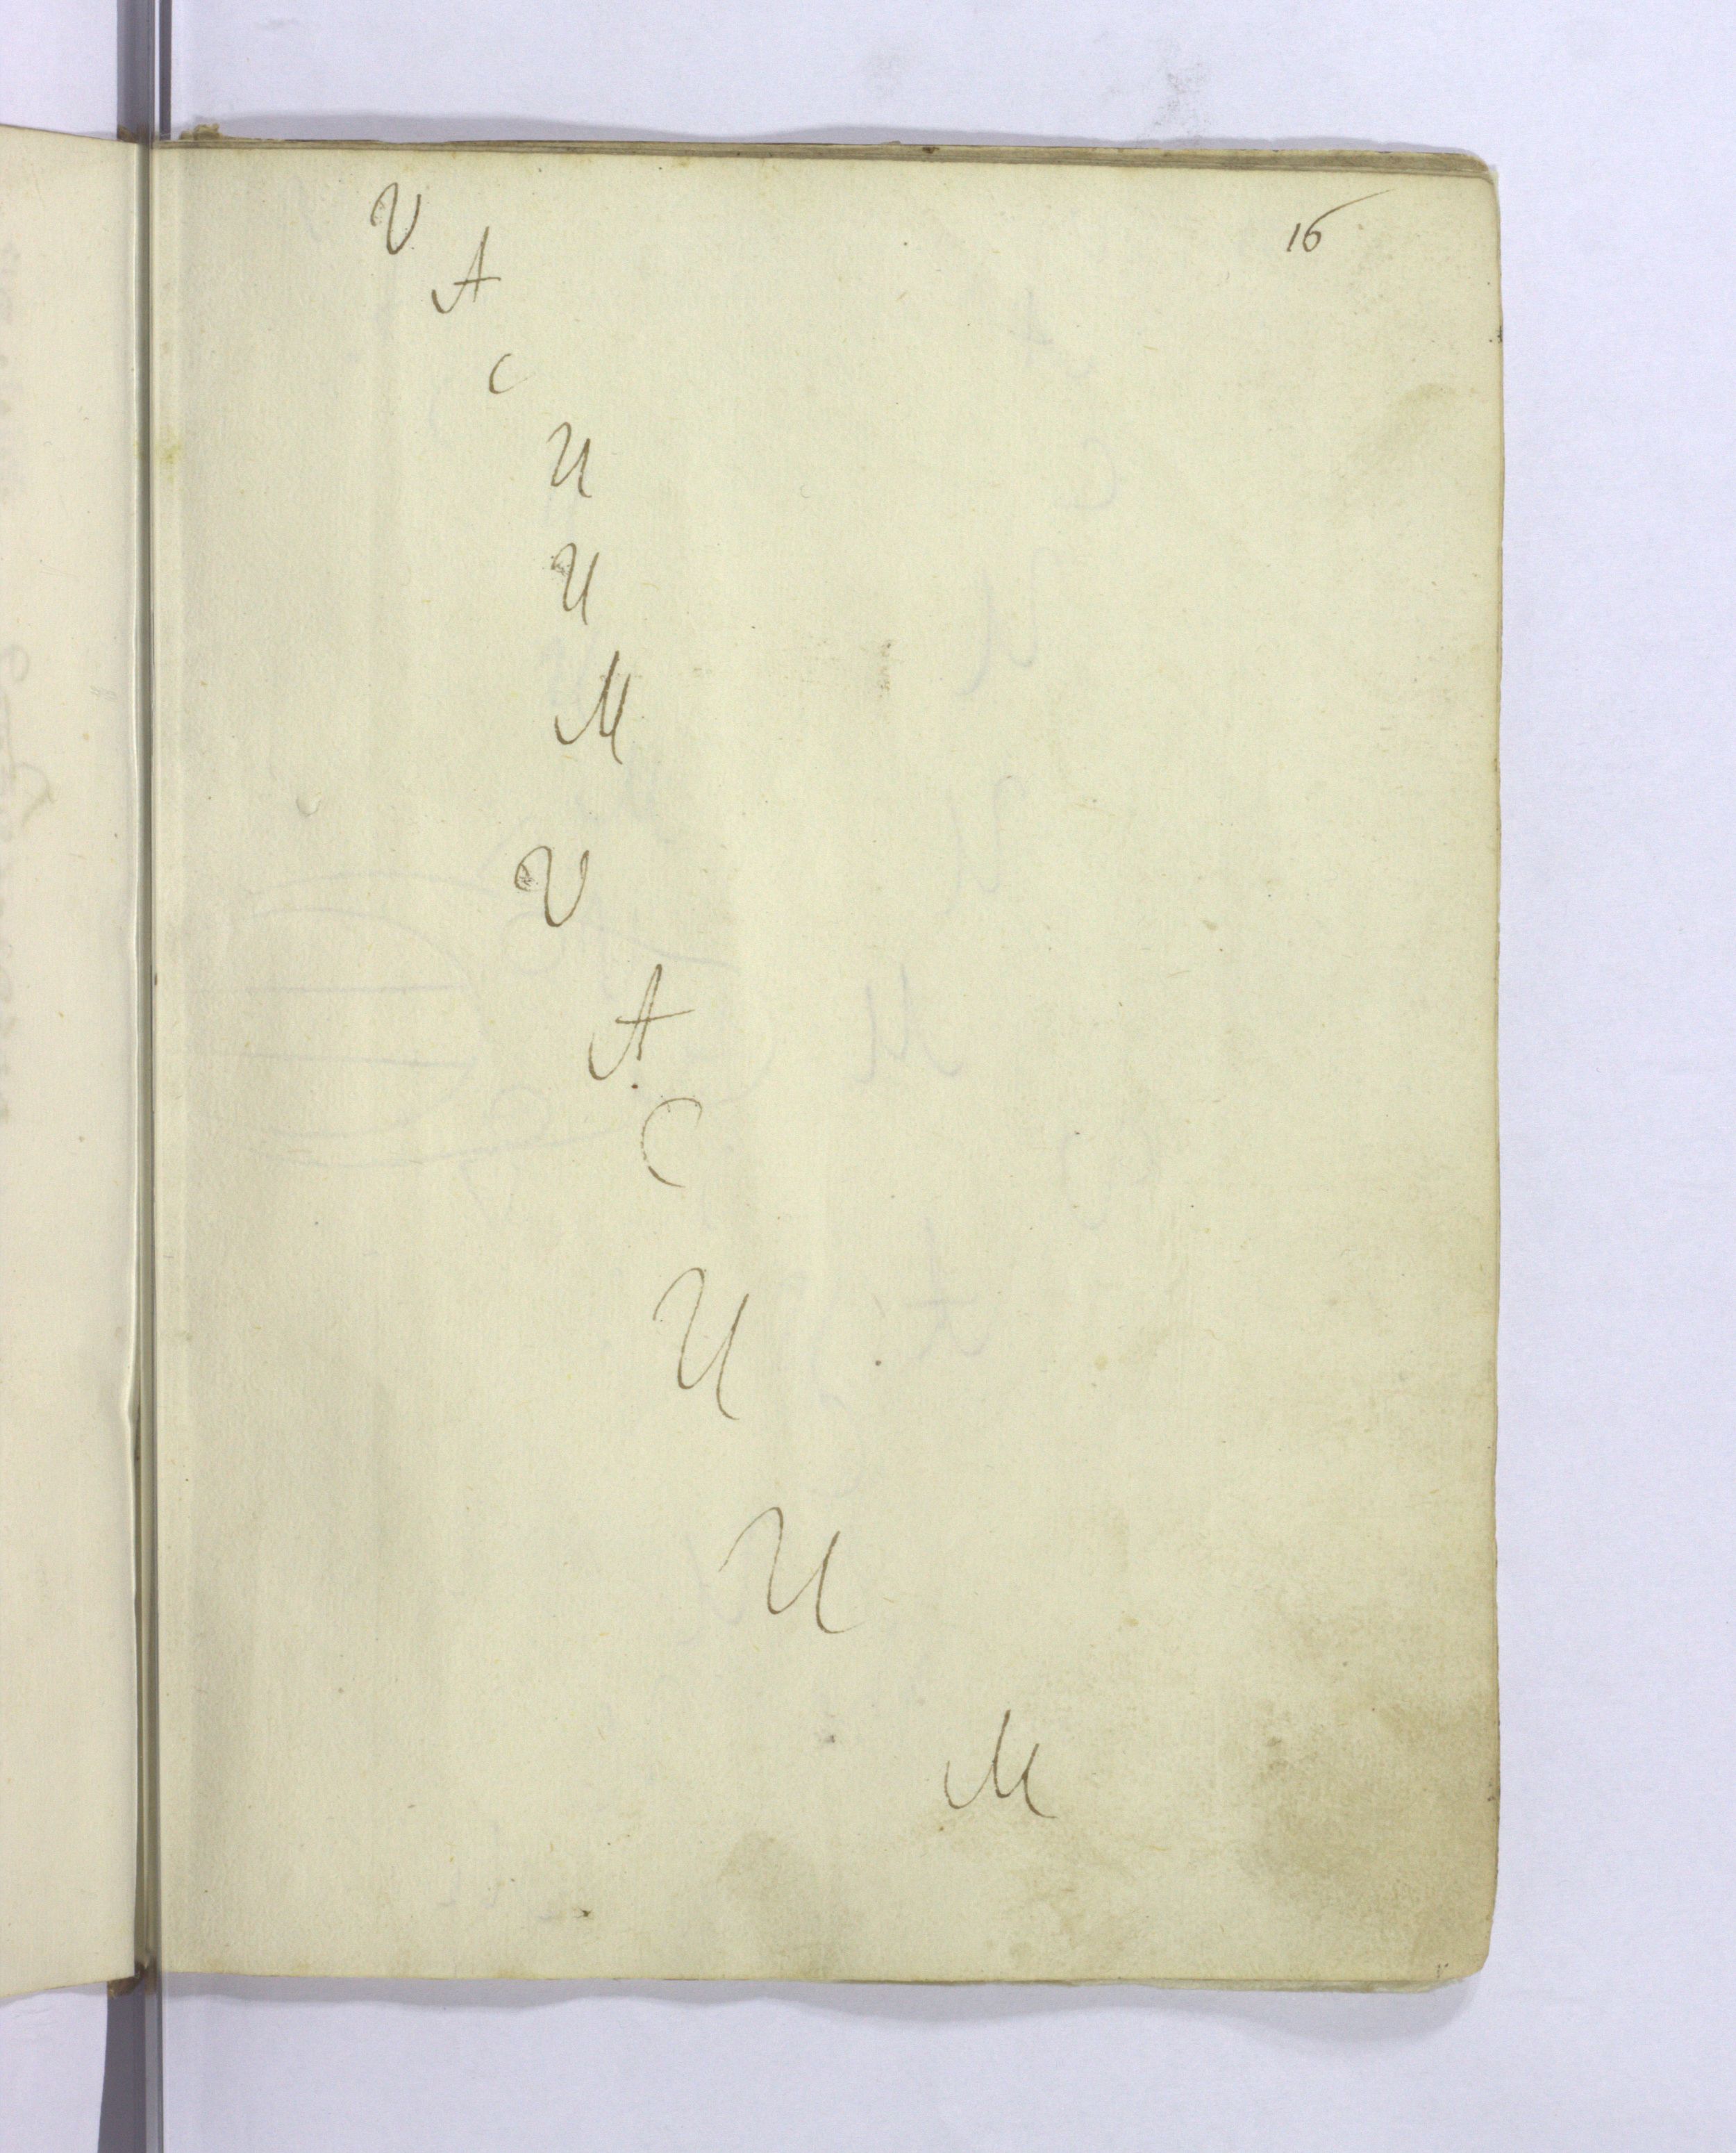 V 16
A
C
U
U
M
V
A
C
U
U
M